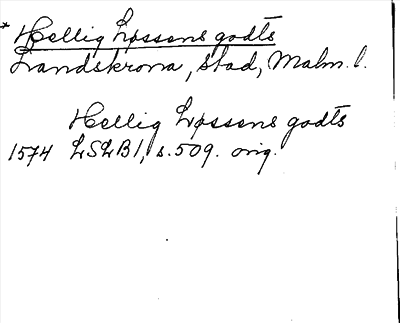 * Hellig Løssens godts
Landskrona, stad, Malm. l.
Hellig Løssens godts
1574 LSLB1, s. 509. orig.